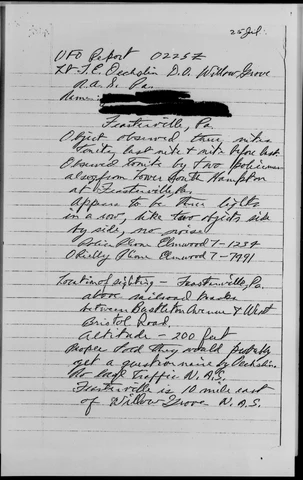 25 Jul
UFO Report 0225Z
Lt J.C. Oechslin D.O. Willow Grove
N.A.S. Pa
Feasterville, Pa
Object observed three nites
tonite, last nite & nite before last.
Observed tonite by two policemen
also from Tower South Hampton
at Feasterville, Pa
Appears to be three lights
in a row, like two objects side
by side, no noise
Police Phone Elmwood 7-1234
O'Reilly Phone Elmwood 7-7991
Location of sighting - Feasterville, Pa.
above railroad tracks
between Bustleton Avenue & West
Bristol Road.
altitude - 200 feet
People told they would probably
get a questionnaire by Oechslin.
No local Traffic N.A.S.
Feasterville is 10 mile east
of Willow Grove N.A.S.